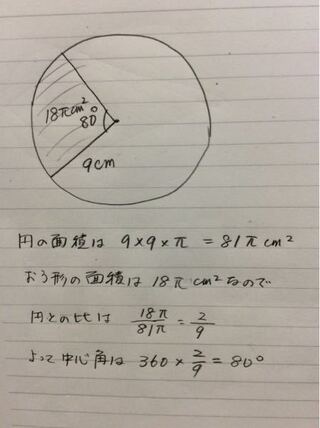 18πcm²
80°
9cm
円の面積は 9×9×π = 81π cm²
おうぎ形の面積は 18π cm² なので
円との比は 18π/81π = 2/9
よって中心角は 360 × 2/9 = 80°